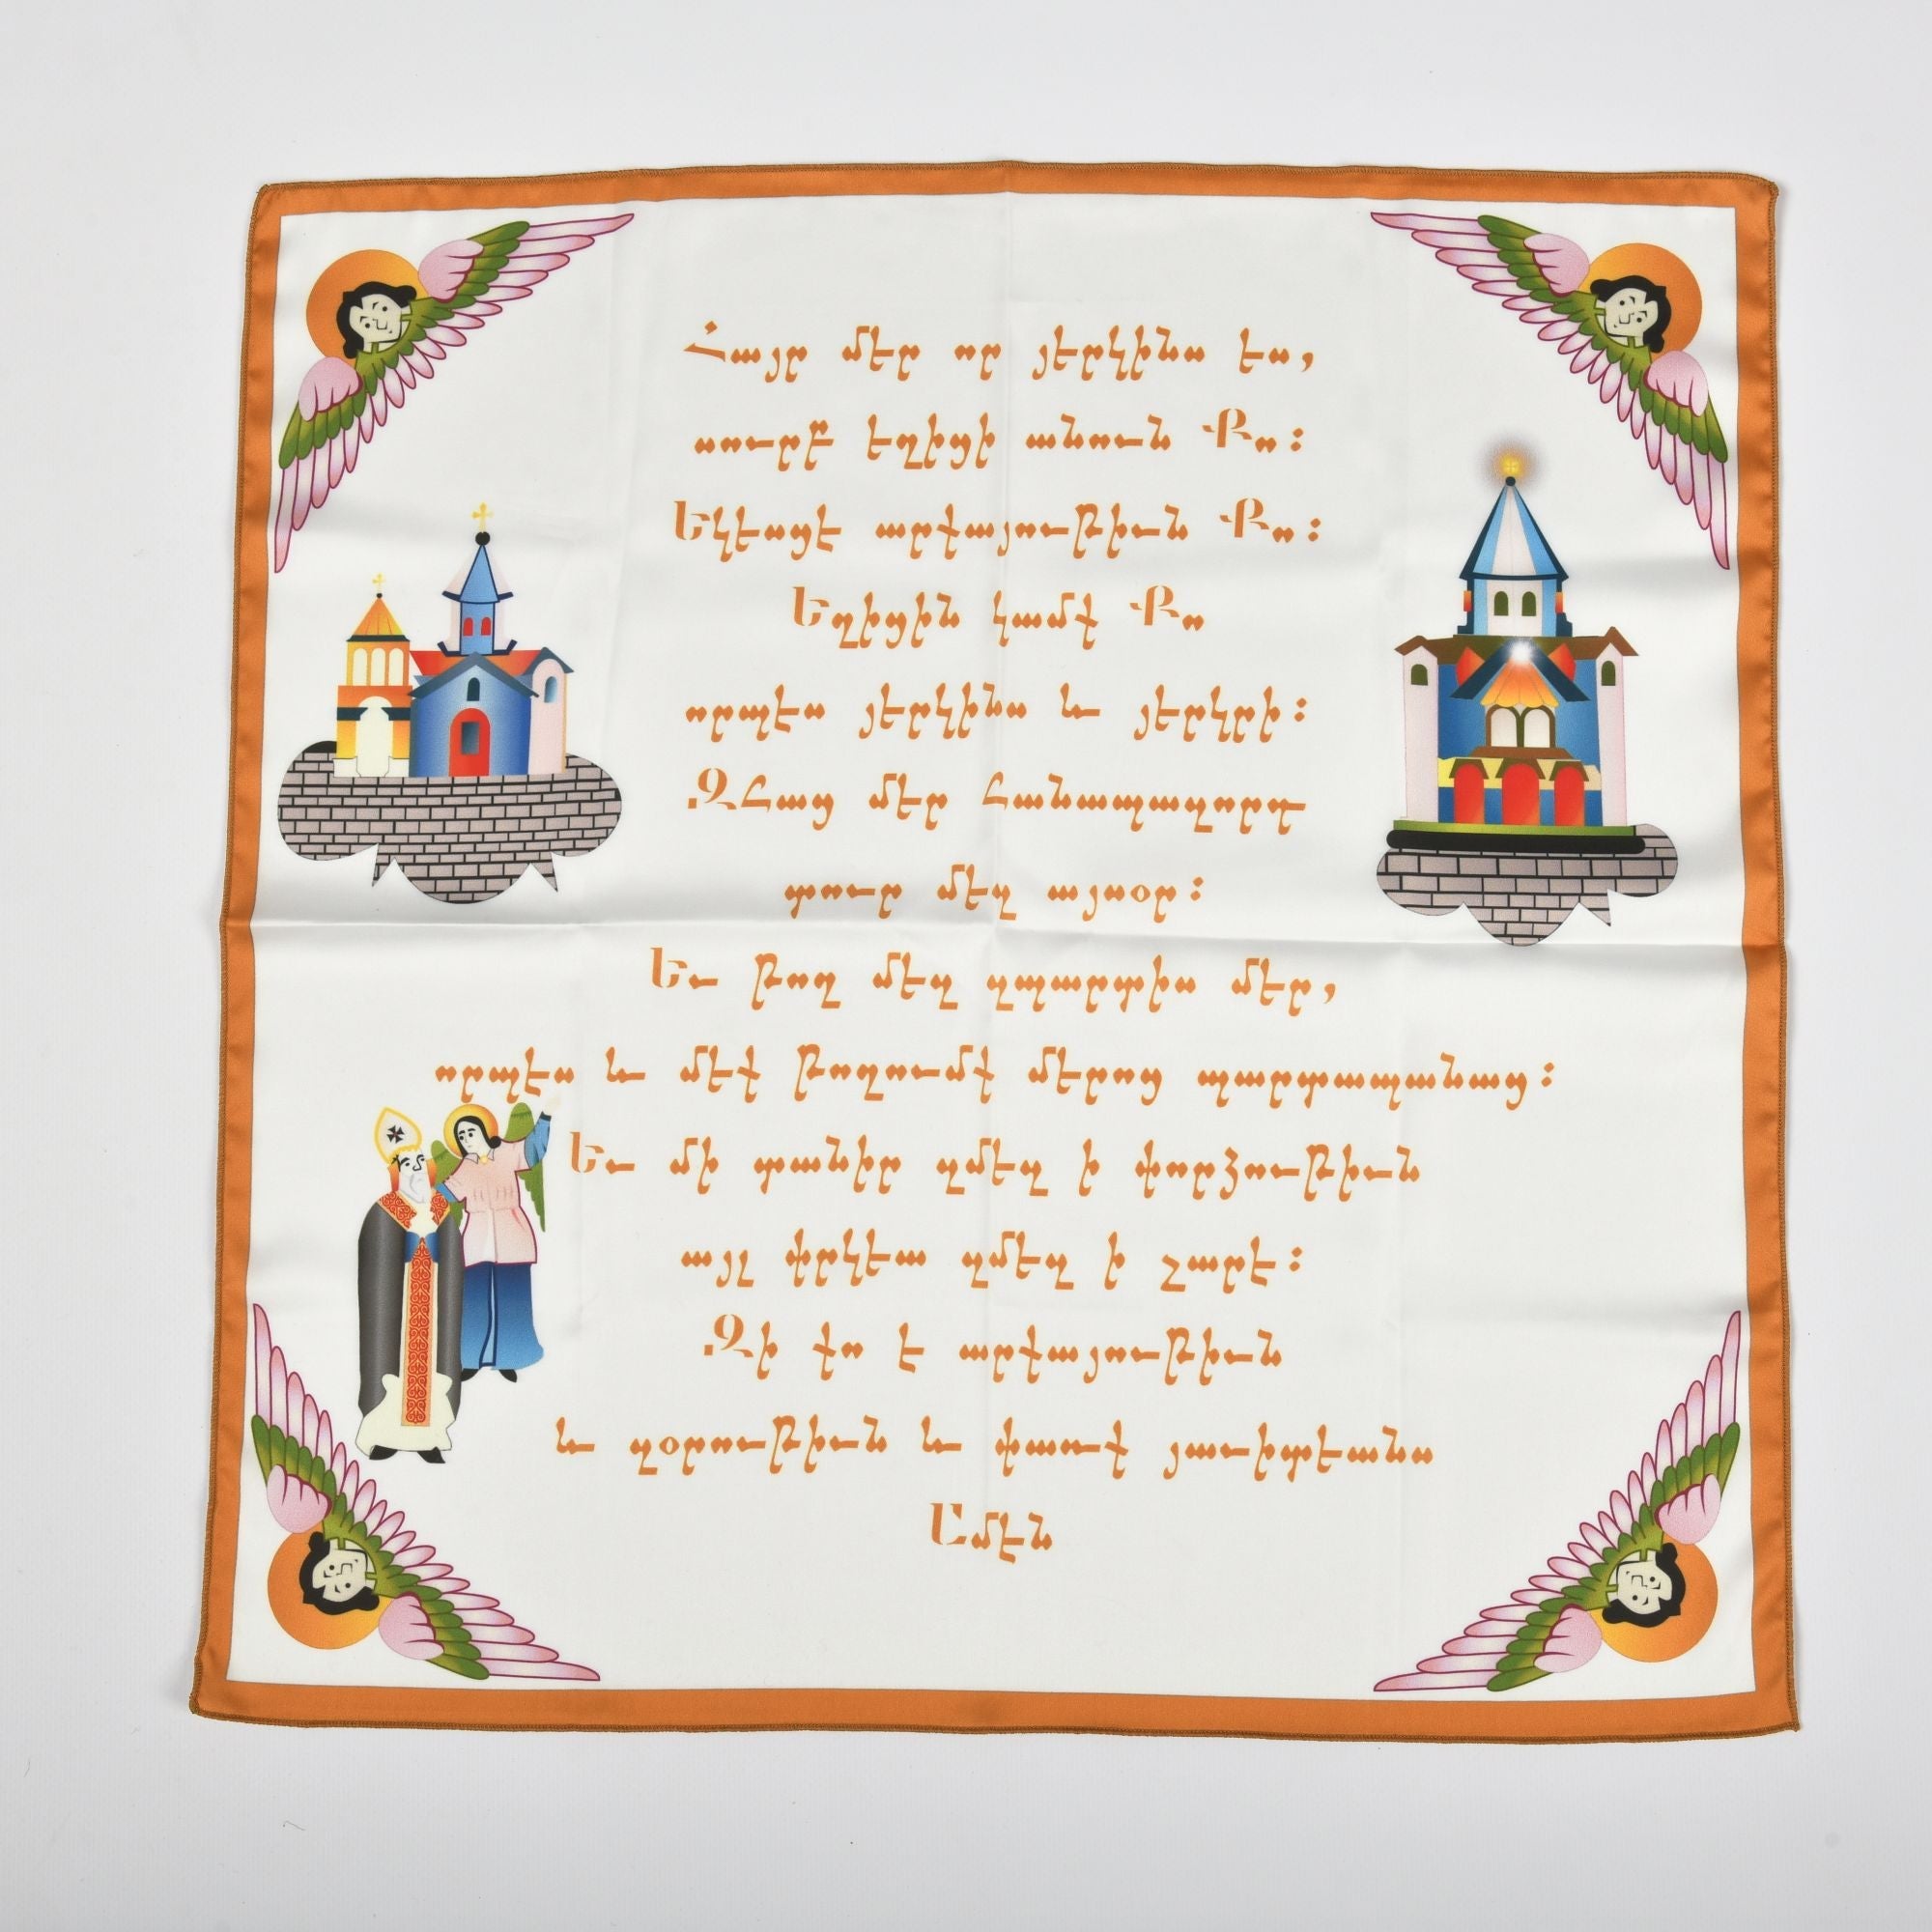 Հայր մեր որ յերկինս ես,
սուրբ եղիցի անուն Քո:
Եկեսցէ արքայութիւն Քո:
Եղիցին կամք Քո
որպէս յերկինս և յերկրի:
ԶՀաց մեր Հանապազորդ
տուր մեզ այսօր:
Եւ թող մեզ զպարտիս մեր,
որպէս և մեք թողումք մերոց պարտապանաց:
Եւ մի տանիր զմեզ ի փորձութիւն
այլ փրկեա զմեզ ի չարէ:
Զի քո է արքայութիւն
և զօրութիւն և փառք յաւիտեանս
Ամեն